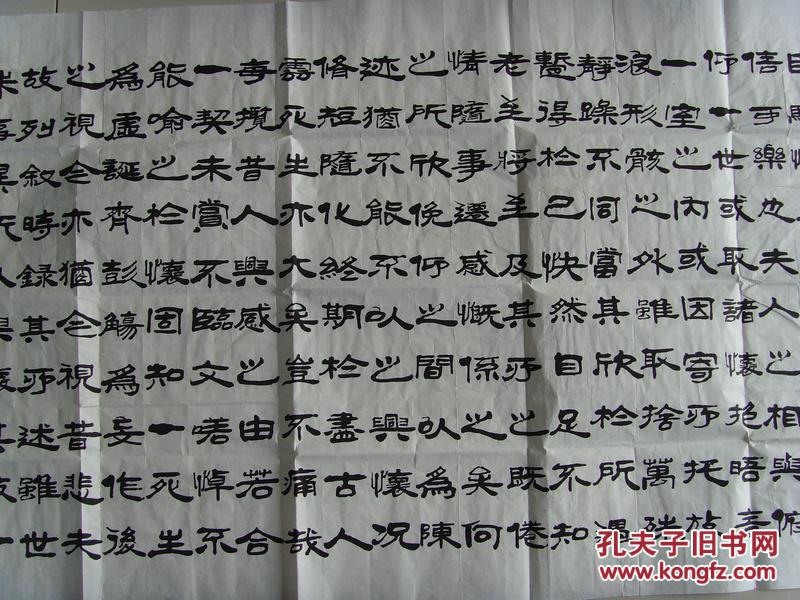 信可樂也夫人之相與俯
仰一世或取諸懷抱晤言
一室之內或因寄所托放
浪形骸之外雖取捨萬殊
靜躁不同當其欣於所遇
暫得於己快然自足不知
老至將至及其所之既倦
情隨事遷感慨係之矣何
之所欣俛仰之間以為陳
迹猶不能不以之興懷況
脩短隨化終期於盡古人
雲死生亦大矣豈不痛哉
每攬昔人興感之由若合
一契未嘗不臨文嗟悼不
能喻之於懷固知一死生
為虛誕齊彭殤為妄作後
之視今亦猶今視昔悲夫
故列敘時錄其所述雖世
孔夫子旧书网
www.kongfz.com